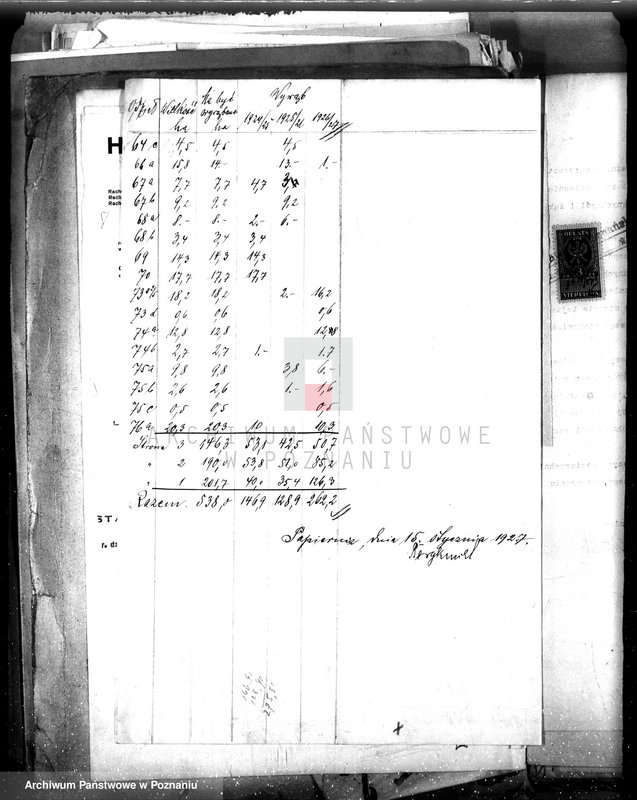 Oddział Wielkość Ma być Wyrąb
ha wyrąbane ha 1924/25 1925/26 1926/27
64 c 4,5 4,5 4,5
66 a 15,8 14.- 13.- 1.-
67 a 7,7 7,7 4,7
67 b 9,2 9.2 9.2
68 a 8.- 8.- 2.- 6.-
68 b 3,4 3,4 3,4
69 14,3 14,3 14,3
70 17,7 17,7 17,7
18,2 18,2 2.- 16,2
73 d 0,6 0,6 0,6
74 a 12,8 12,8 12,8
74 b 2,7 2,7 1.- 1.7
75 a 9,8 9.8 3,8 6.-
75 b 2,6 2,6 1.- 1,6
75 c 0,5 0,5 0,5
76 a 20,3 20,3 10 10,3
Strona 3 146,3 53,1 42,5 50,7
" 2 190,0 53,8 51,0 85,2
" 1 201,7 40,0 35,4 126,3
Razem 538,0 146,9 128,9 262,2
Papiernia, dnia 15. stycznia 1927.
OPŁATA
STEMPLOWA
ARCHIWUM PAŃSTWOWE
W POZNANIU
Archiwum Państwowe w Poznaniu